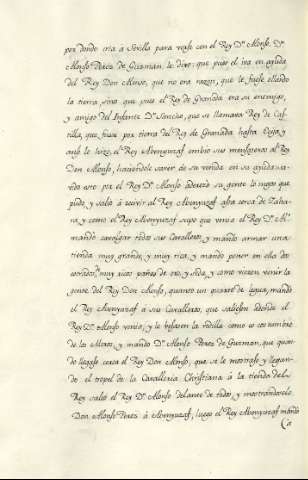 por donde iria a Sevilla para verse con el Rey Dⁿ Alonso. Dⁿ
Alonso Perez de Guzman, le dixo: que pues el iva en ayuda
del Rey Don Alonso, que no era razon, que le fuese ollando
la tierra, sino que pues el Rey de Granada era su enemigo,
y amigo del Infante Dⁿ Sancho, que se llamava Rey de Cas-
tilla, que fuese por tierra del Rey de Granada hasta Ecija, y
ansi lo hizo, el Rey Abenyuzaf embio sus mensageros al Rey
Don Alonso, haciendole saver de su venida en su ayuda:
esto por el Rey Dⁿ Alonso aderezó su gente lo mejor que
pudo, y salió á recivir al Rey Abenyuzaf alla cerca de Zaha-
ra, y como el Rey Abenyuzaf supo que venia el Rey Dⁿ Alº
mandó cavalgar todos sus Cavalleros, y mandó armar una
tienda muy grande, y muy rica, y mandó poner en ella dos
muy ricos paños de oro, y seda, y como vieron venir la
gente del Rey Don Alonso, quanto un quarto de legua, mandó
el Rey Abenyuzaf a sus Cavalleros, que saliesen adonde el
Rey Dⁿ Alonso venia, y le besasen la rodilla como es costumbre
de los Moros, y mandó Dⁿ Alonso Perez de Guzman, que quan-
do llegase cerca el Rey Don Alonso, que se lo mostrase, y llegan-
do el tropel de la Cavalleria Christiana á la tienda del
Rey salió el Rey Dⁿ Alonso delante de todos, y mostrandoselo
Don Alonso Perez á Abenyuzaf, luego el Rey Abenyuzaf mandó